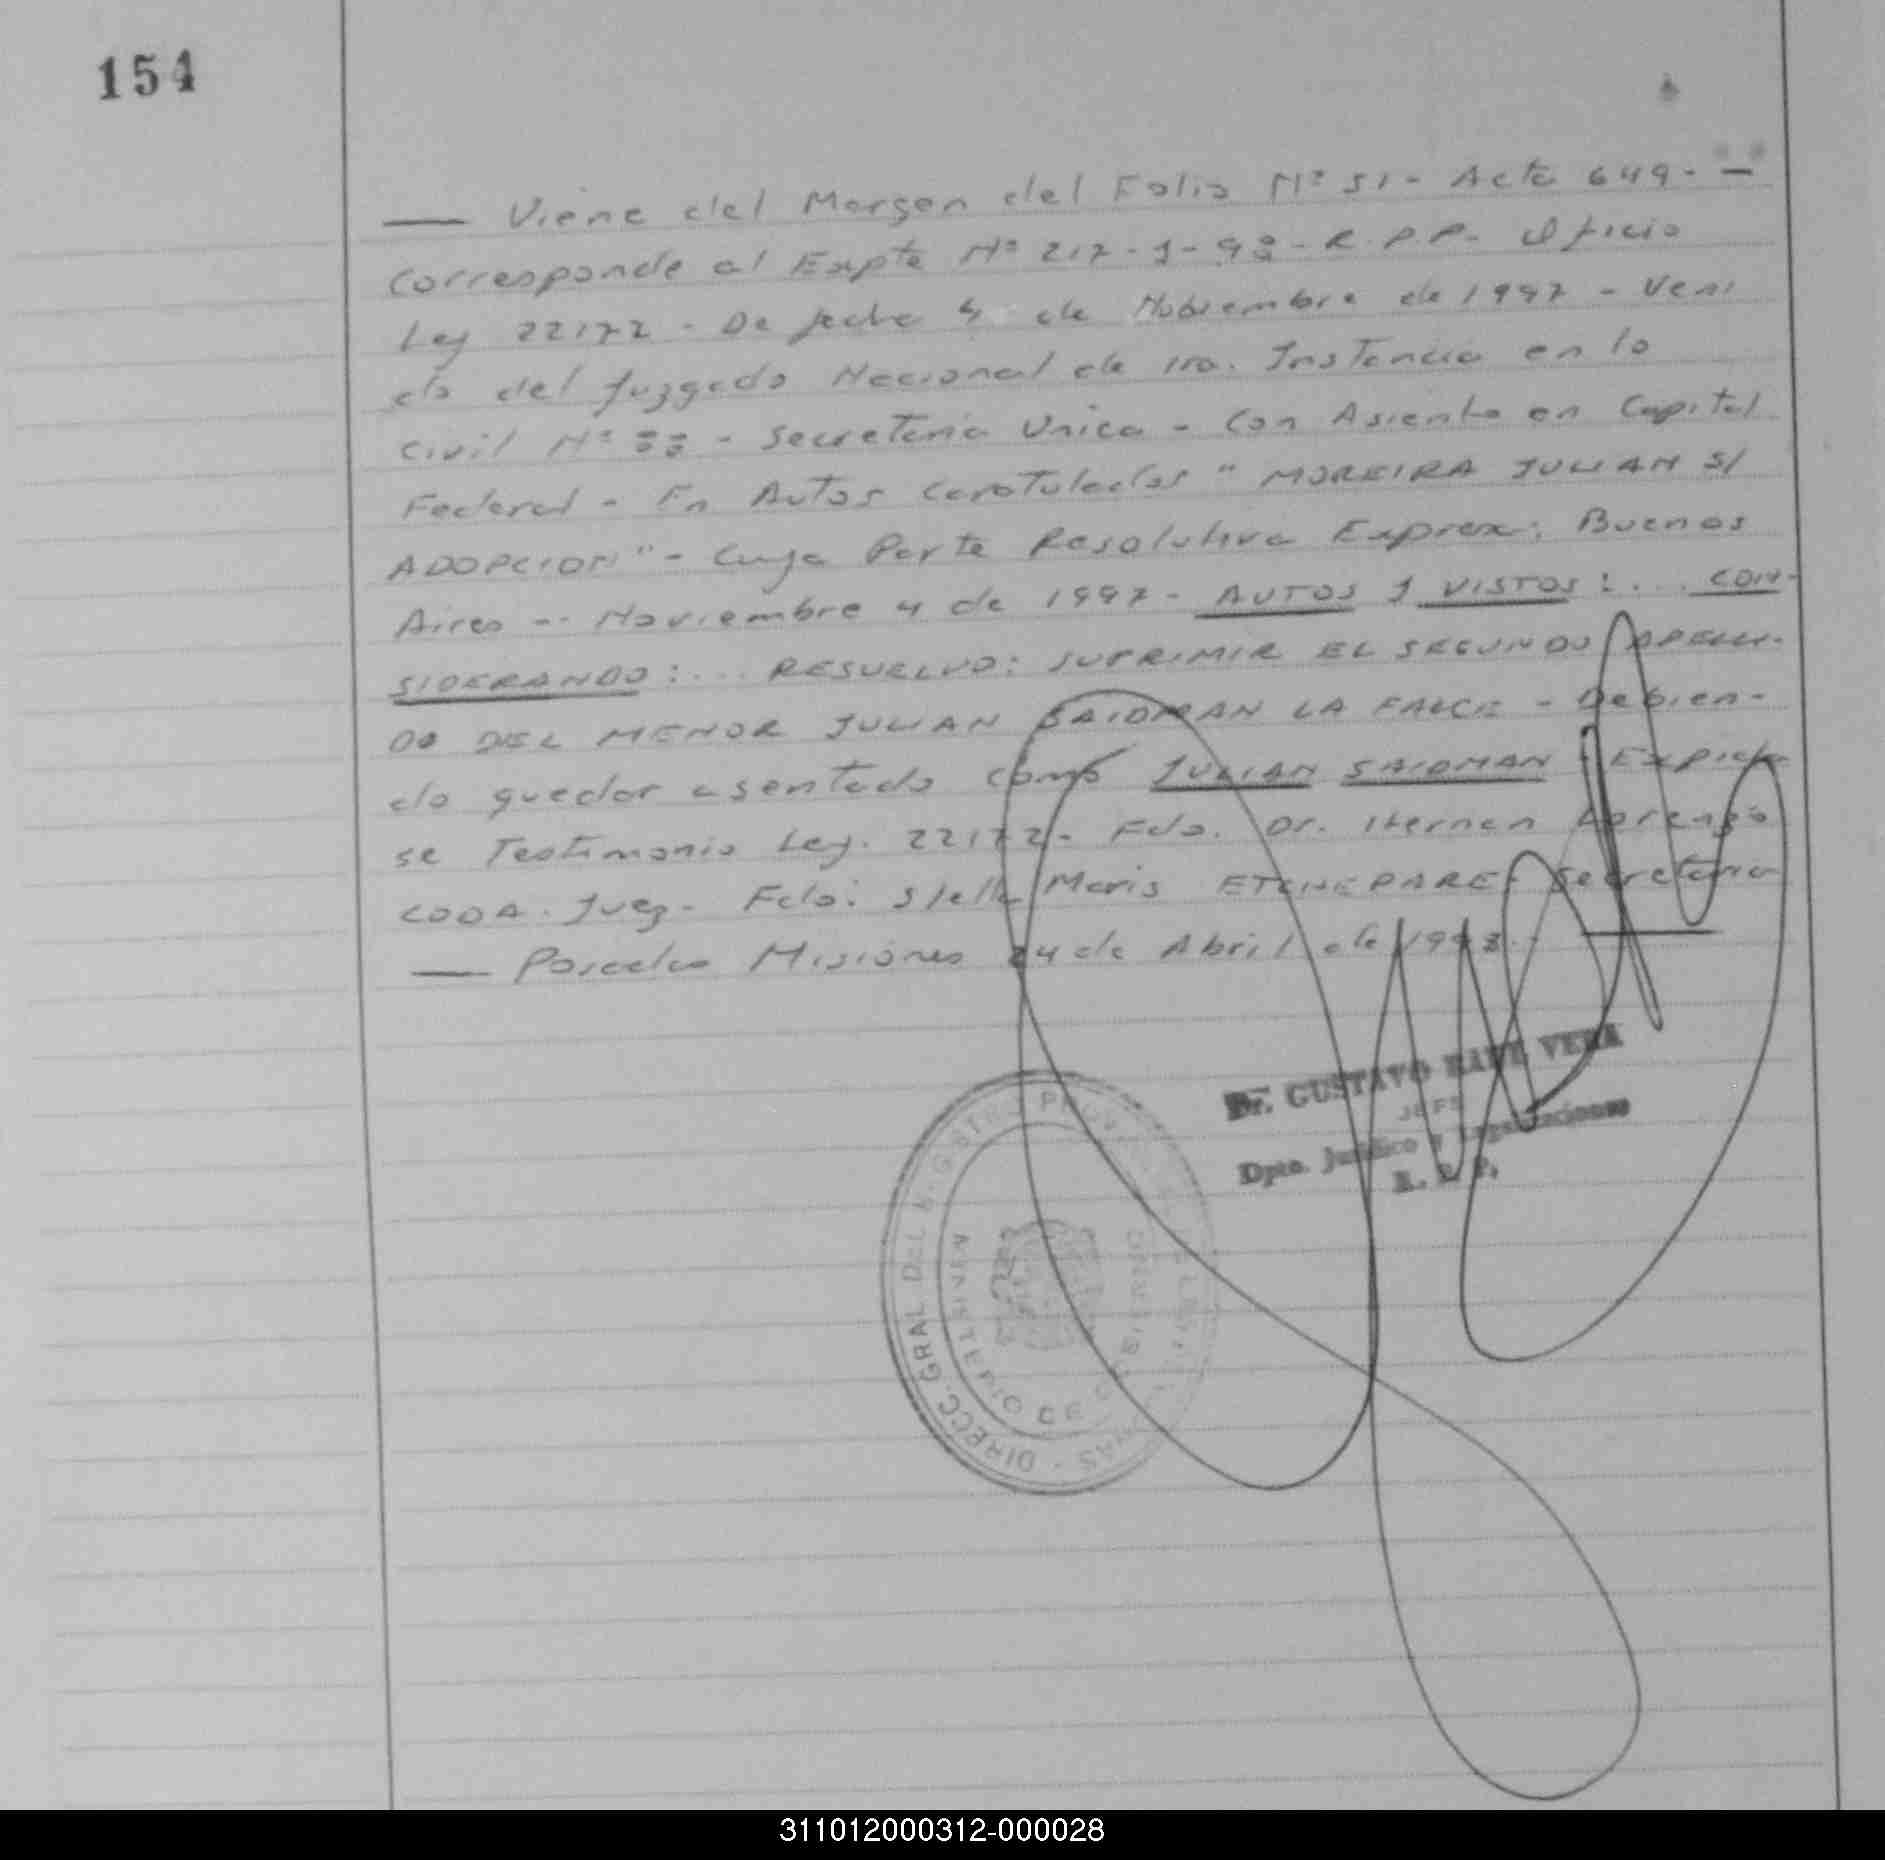 154
— Viene del Margen del Folio Nº 51 - Acta 649 - —
corresponde al Expte Nº 217-J-98 - R.P.P. Oficio
Ley 22172 - De fecha 4 de Nobiembre de 1997 - Veni
do del Juzgado Nacional de 1ra. Instancia en lo
Civil Nº 88 - Secretaria Unica - Con Asiento en Capital
Federal - En Autos Caratulados " MOREIRA JULIAN S/
ADOPCION" - Cuya Parte Resolutiva Expresa: Buenos
Aires -- Noviembre 4 de 1997 - AUTOS Y VISTOS: ... CON-
SIDERANDO: ... RESUELVO: SUPRIMIR EL SEGUNDO APELLI-
DO DEL MENOR JULIAN SAIDMAN LA FALCE - Debien-
do quedar asentado como JULIAN SAIDMAN - Expida
se Testimonio Ley. 22172 - Fdo. Dr. Hernan Lorenzo
CODA. Juez - Fdo: Stella Maris ETCHEPARE - Secretaria
— Posadas Misiones 24 de Abril de 1998 - —
Dr. GUSTAVO VERA
JEFE
Dpto. Jurídico y
R. P. P.
DIRECC. GRAL DEL
MINISTERIO DE
311012000312-000028